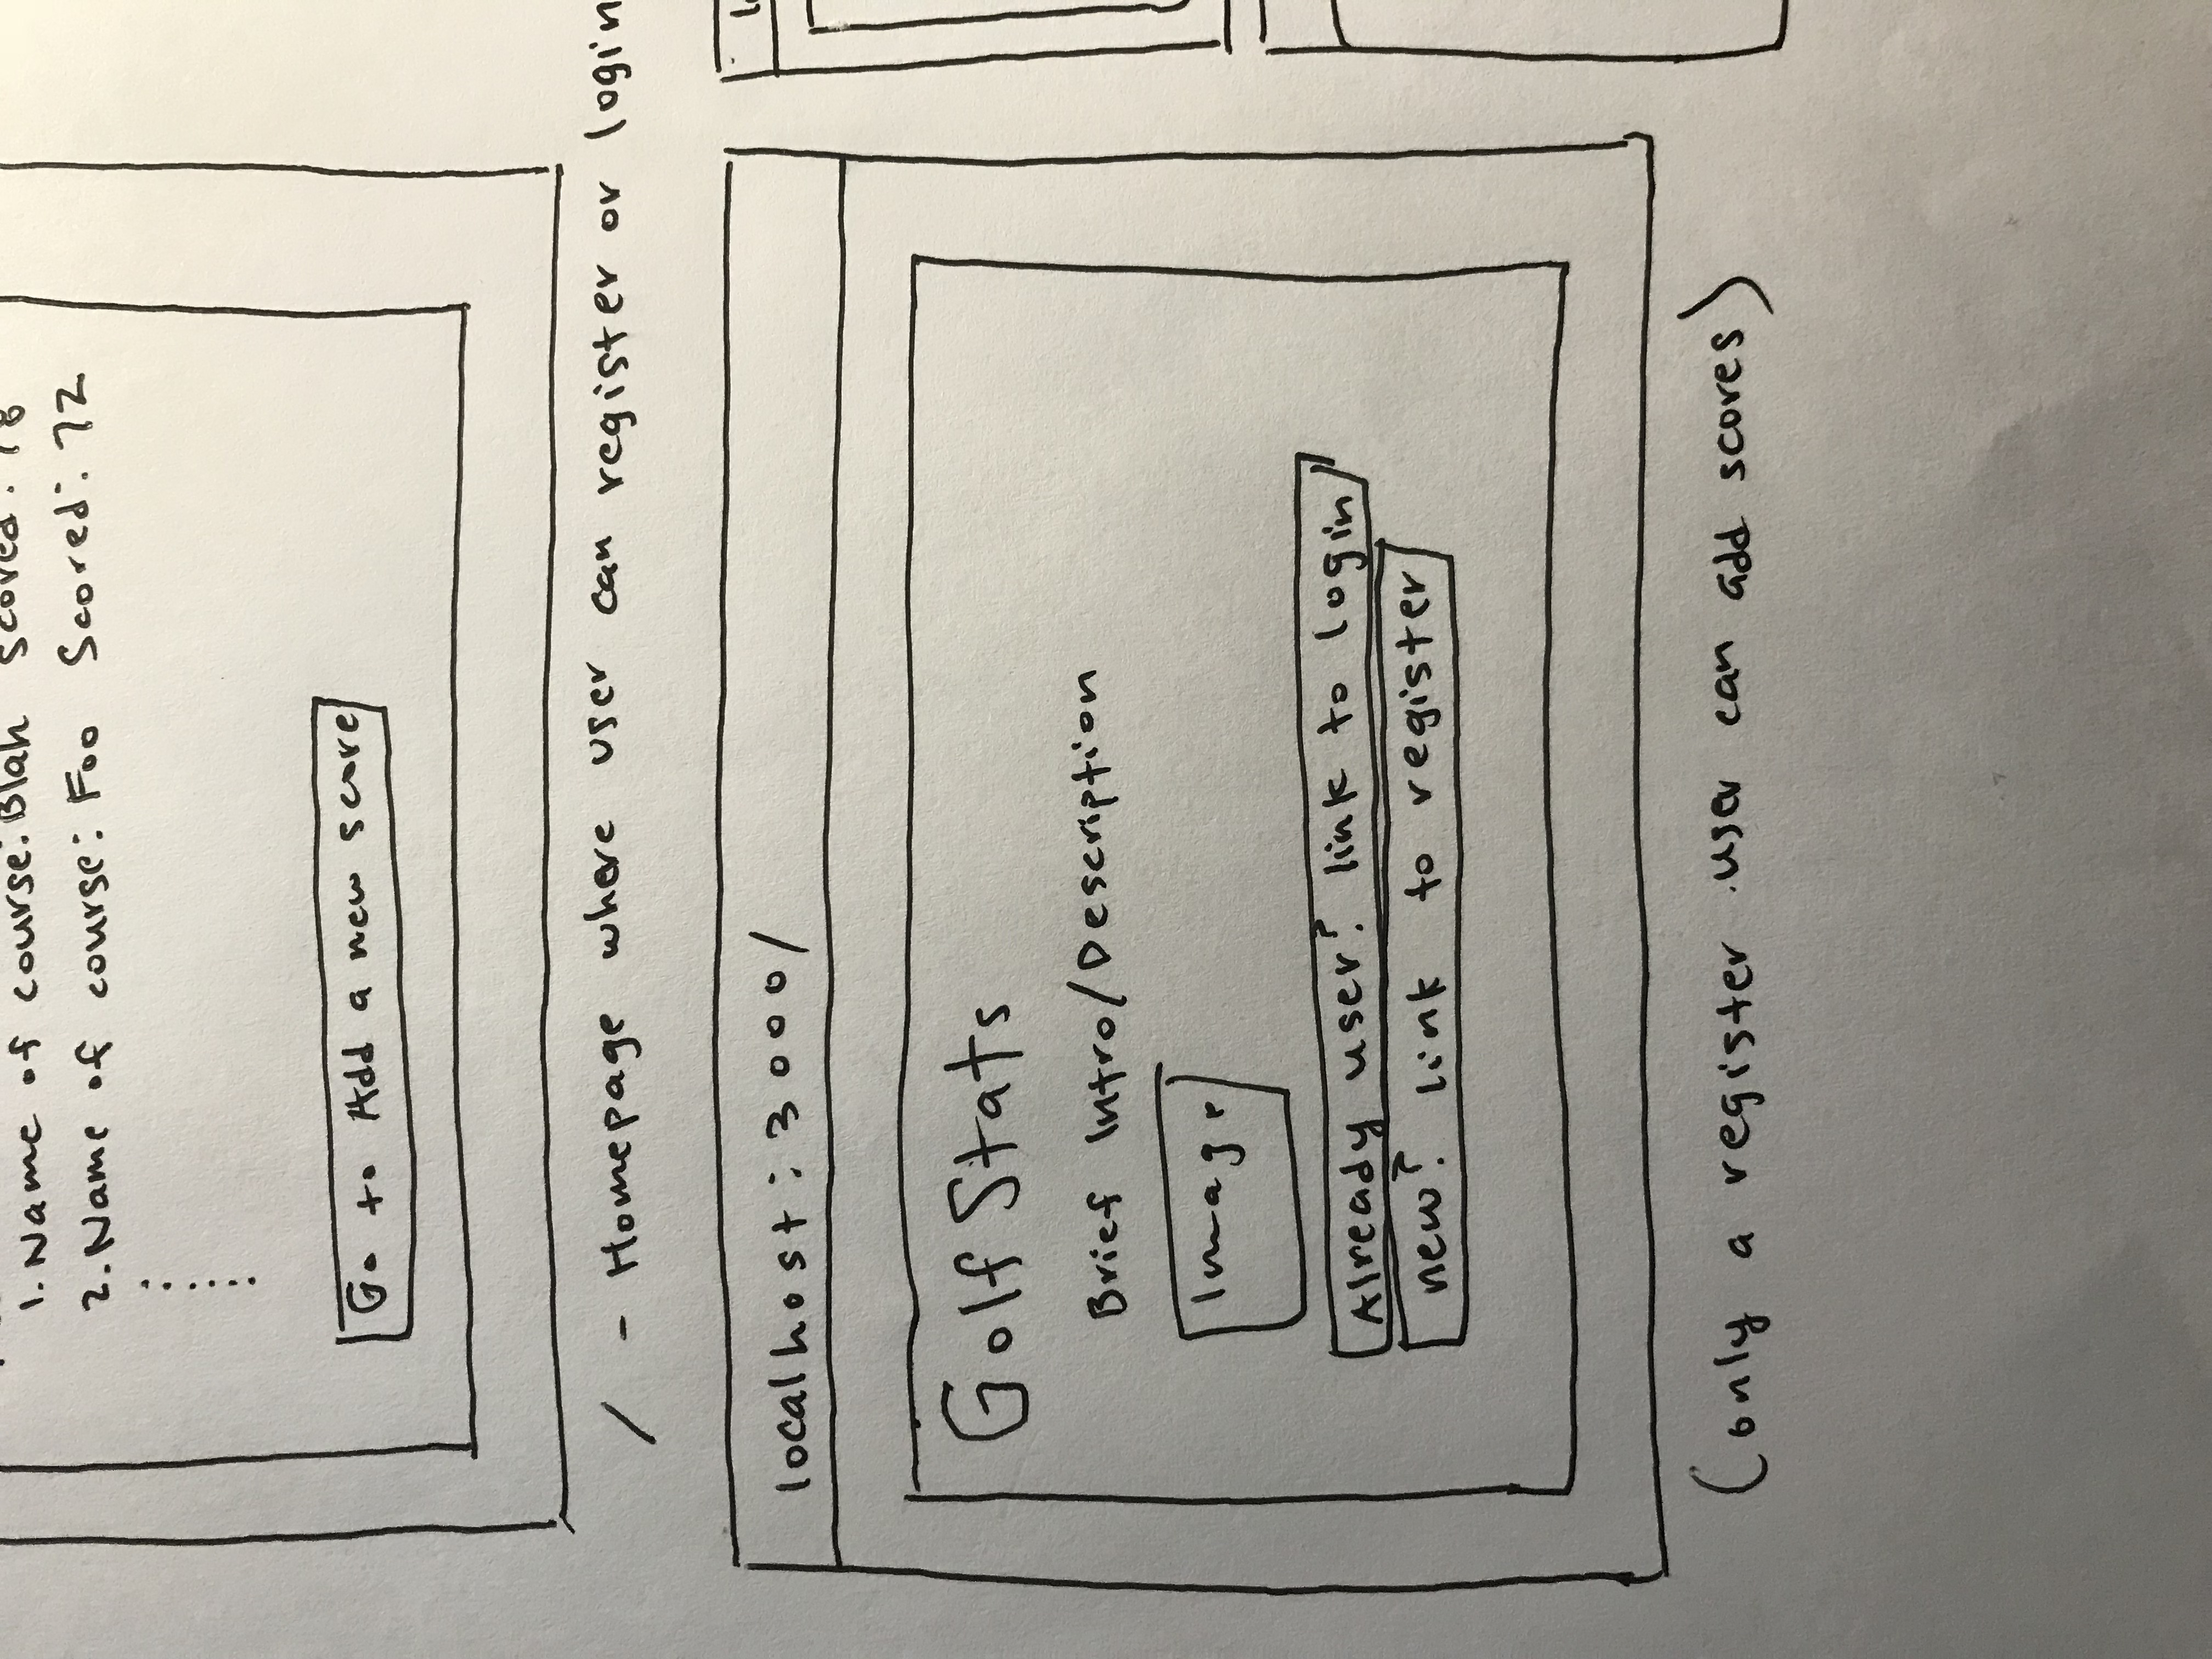 1. Name of course: Blah Scored: 78
2. Name of course: Foo Scored: 72
Go to Add a new score
/ - Homepage where user can register or login
localhost:3000/
Golf Stats
Brief Intro/Description
Image
Already user? link to login
new? link to register
(only a register user can add scores)